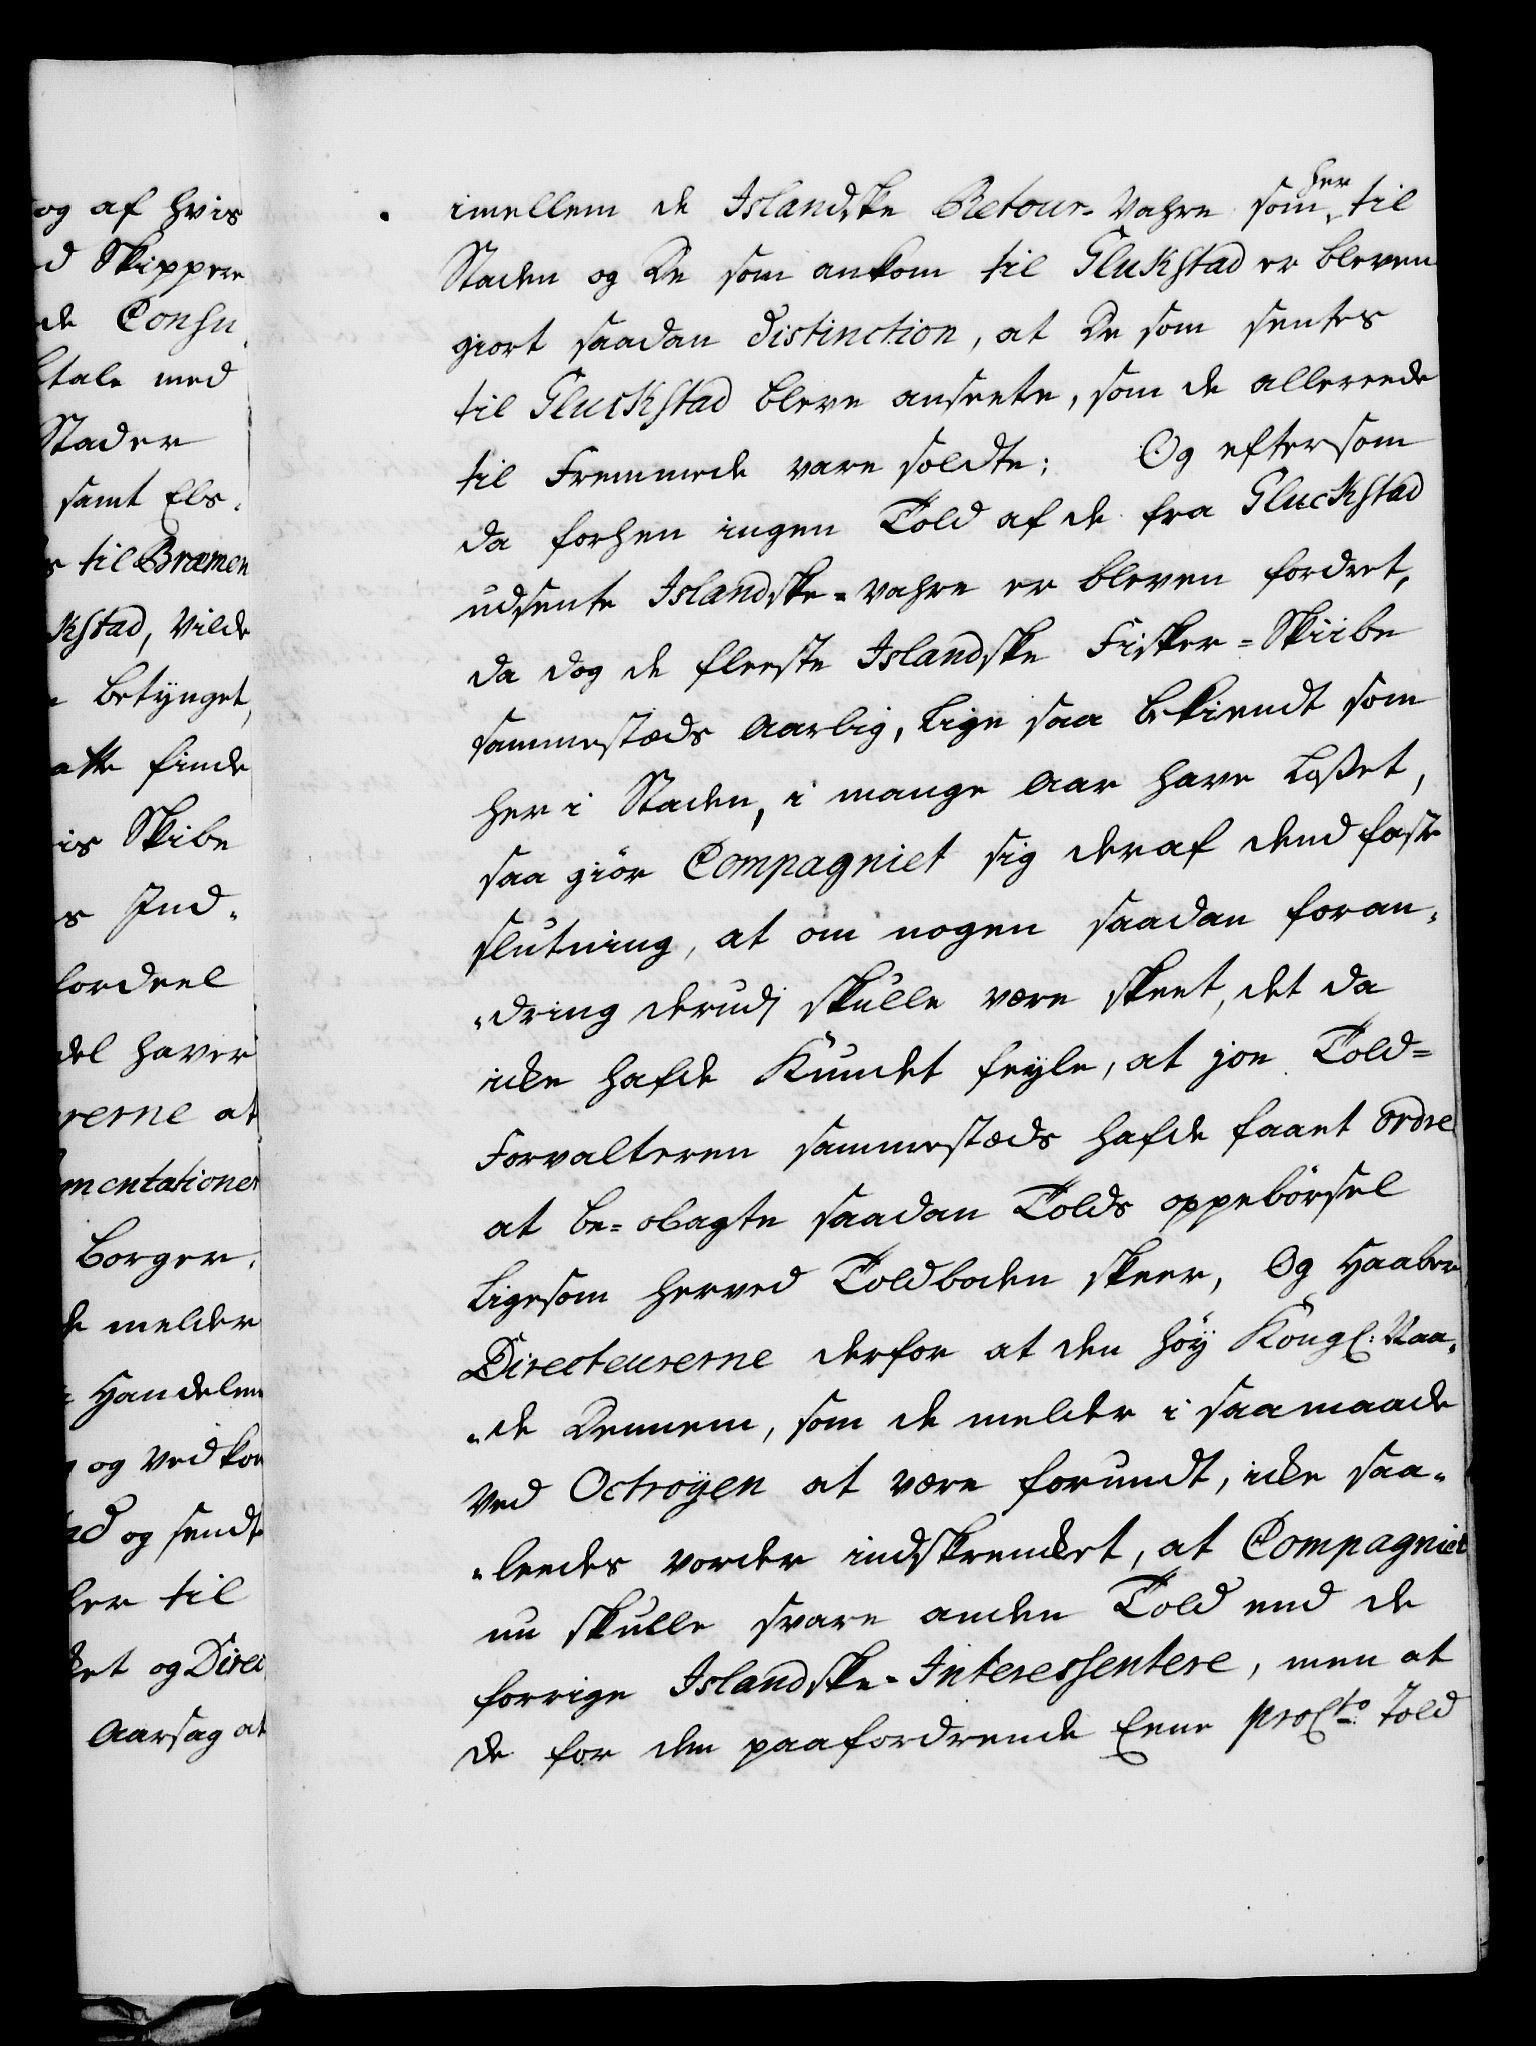 og af hvis
d Skippere
de Consu
tale med
Stader
samt Els-
s til Bræmen
kstad, vilde
betynget,
atte finde
is Skibe
s Ind-
fordeel
del haver
rerne at
mentationer
Borger-
de melder
Handelen
og ved kom
ad og sendt
her til
ket og Direc
Aarsag at
imellem de Islandske Retour-Vahre som her til
Staden og De som ankom til Glukstad er bleven
giort saadan distinction, at De som sentes
til Gluckstad bleve anseete, som de allereede
til Fremmede vare soldte; Og eftersom
da forhen ingen Told af de fra Gluckstad
udsente Islandske-Vahre er bleven fordret,
da dog de fleeste Islandske Fisker=Skiibe
sammestæds Aarlig, lige saa bekiendt som
her i Staden, i mange Aar have Loßet,
saa giör Compagniet sig deraf dend faste
slutning, at om nogen saadan foran-
-dring derudj skulle være skeet, det da
icke hafde Kundet feyle, at joe Told=
Forvalteren sammestæds hafde faaet ordre
at be=obagte saadan Tolds oppebörsel
ligesom herved Toldboden skeer, Og Haaber
Directeurerne derfor at den höy Kongl: Naa-
-de Dennem, som de melder i saamaade
ved Octroyen at være forundt, icke saa-
-leedes vorder indskrencket, at Compagniet
nu skulle svare anden Told end de
forrige Islandske-Interessentere, men at
de for den paafordrende Eene proCto Told